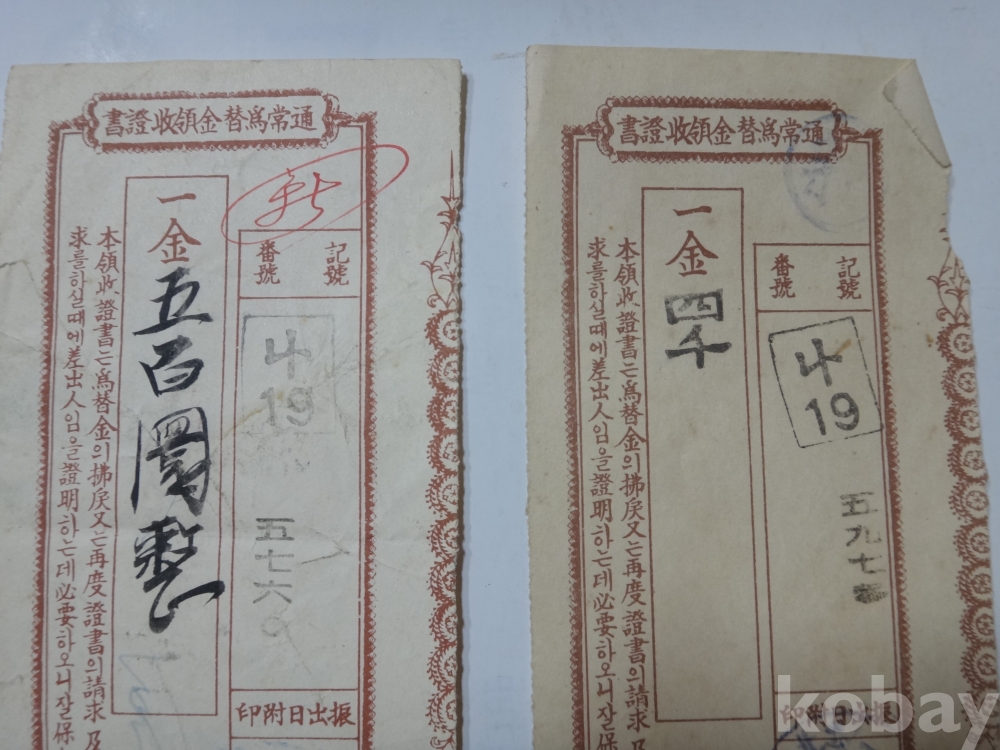 通常爲替金領收證書
記號
番號
ㅏ나
19
五七六
一金五百圜整
本領收證書는爲替金의拂戾又는再度證書의請求及
求를하실때에差出人임을證明하는데必要하오니잘保
振出日附印
通常爲替金領收證書
記號
番號
나
19
五九七
一金四千
本領收證書는爲替金의拂戾又는再度證書의請求及
求를하실때에差出人임을證明하는데必要하오니잘保
振出日附印
kobay